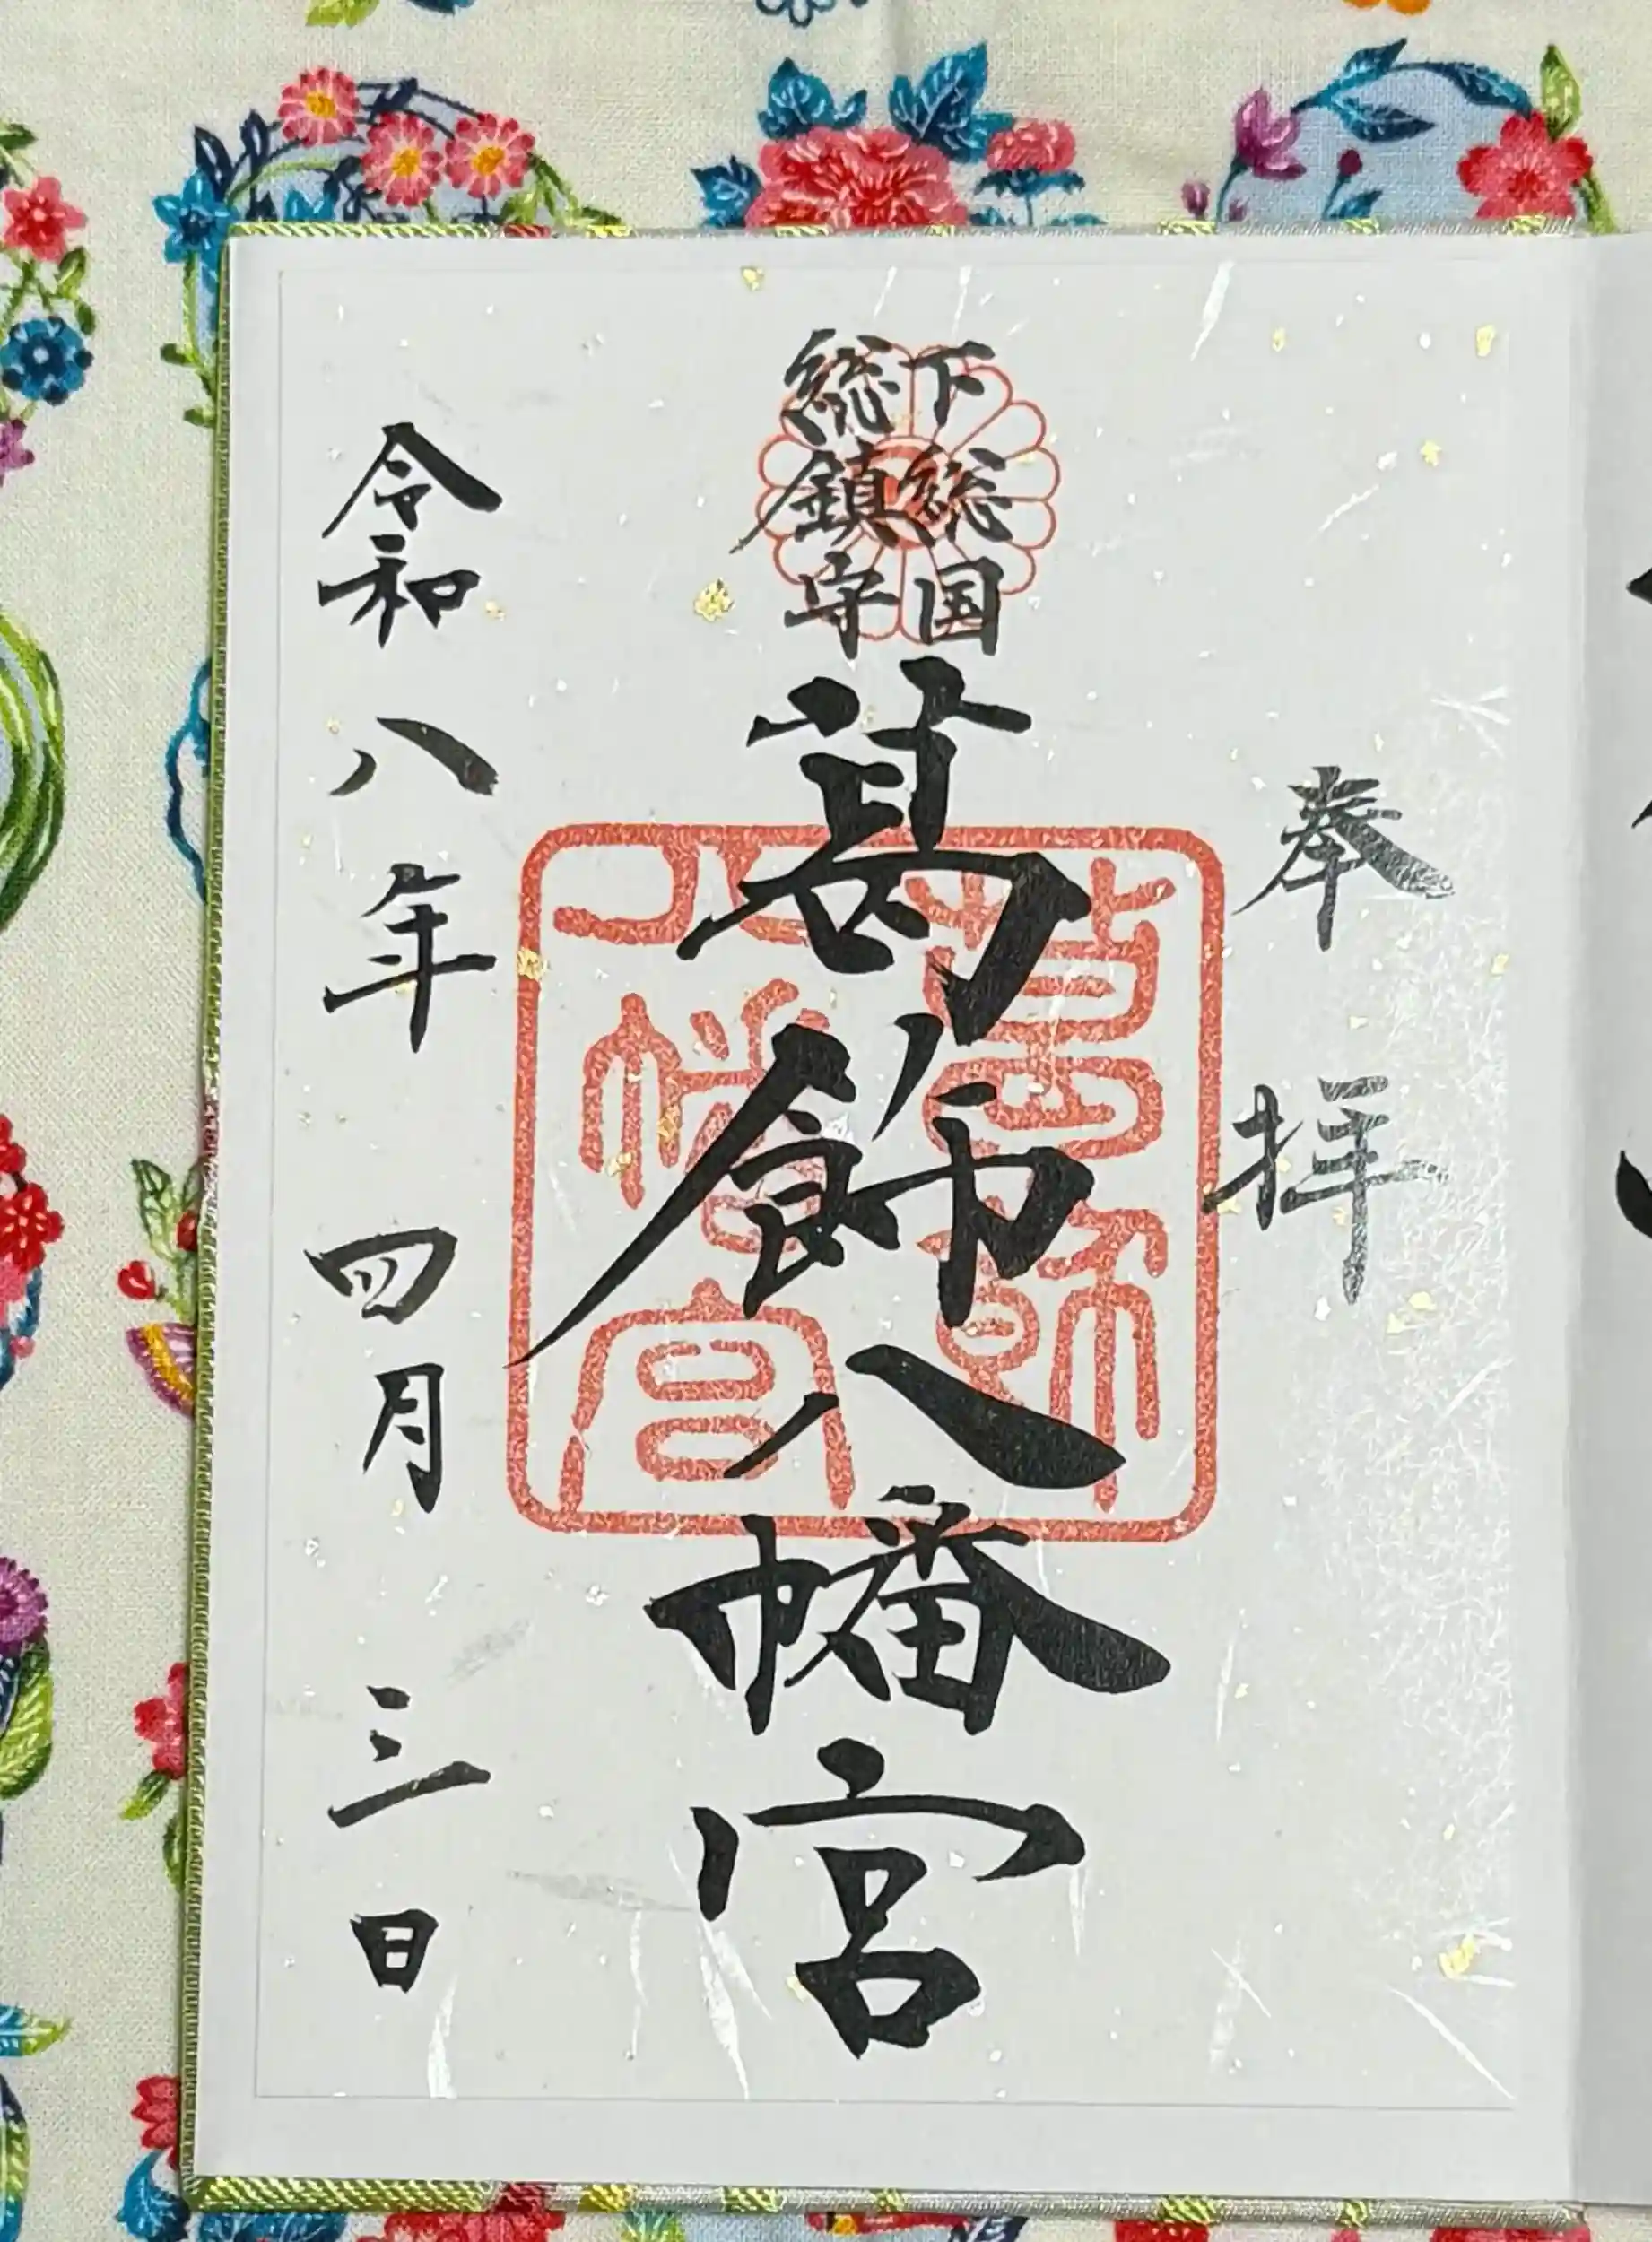 奉拝
下総国
総鎮守
葛飾八幡宮
葛飾
八幡宮
令和八年四月三日